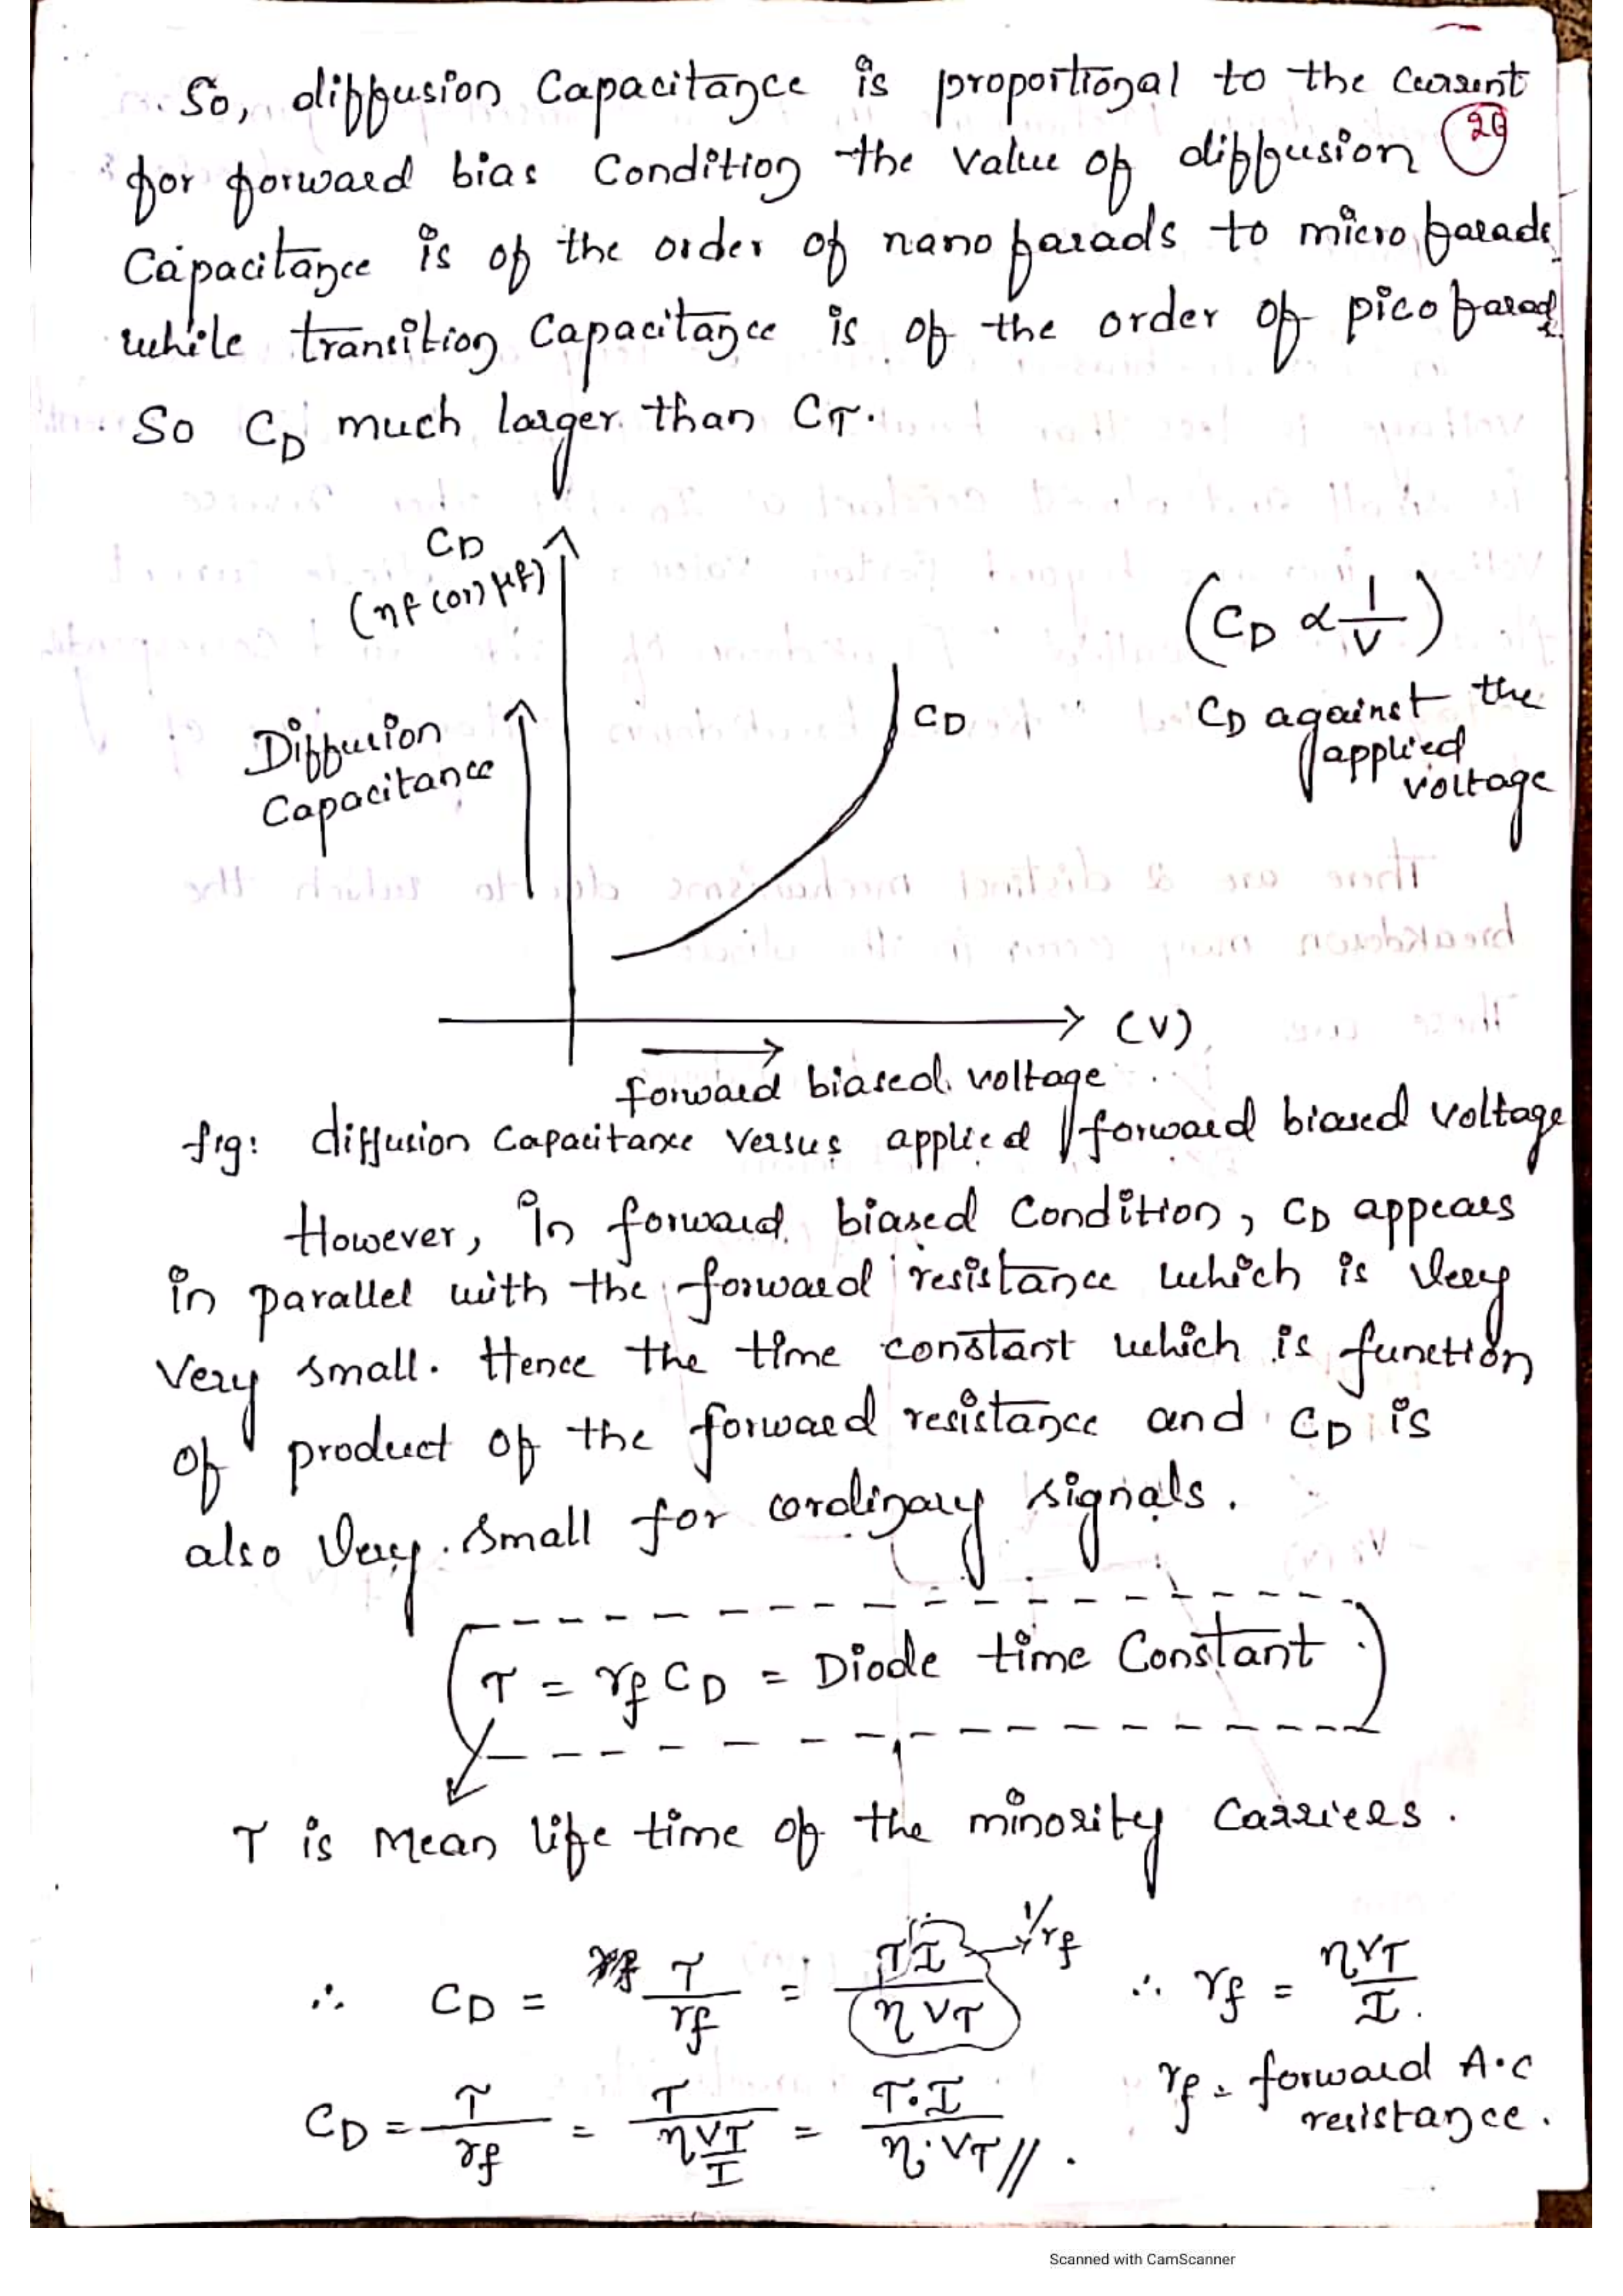 So, diffusion Capacitance is proportional to the current
20
for forward bias Condition the value of diffusion
Capacitance is of the order of nano farads to micro farads
while transition Capacitance is of the order of pico farads
So CD much larger than CT.
CD
(nf (or) μf)
(CD ∝ 1/V)
CD
CD against the
applied
voltage
Diffusion
Capacitance
(V)
forward biased voltage
fig: diffusion Capacitance Versus applied forward biased voltage
However, in forward biased Condition, CD appears
in parallel with the forward resistance which is very
very small. Hence the time constant which is function
of product of the forward resistance and CD is
also very small for cordinary signals.
τ = rf CD = Diode time Constant
τ is Mean life time of the minority Carriers.
1/rf
∴ CD = τ/rf = τI/ηVT ∴ rf = ηVT/I.
rf = forward A.C
resistance.
CD = τ/rf = τ/(ηVT/I) = τ.I/η.VT //.
Scanned with CamScanner